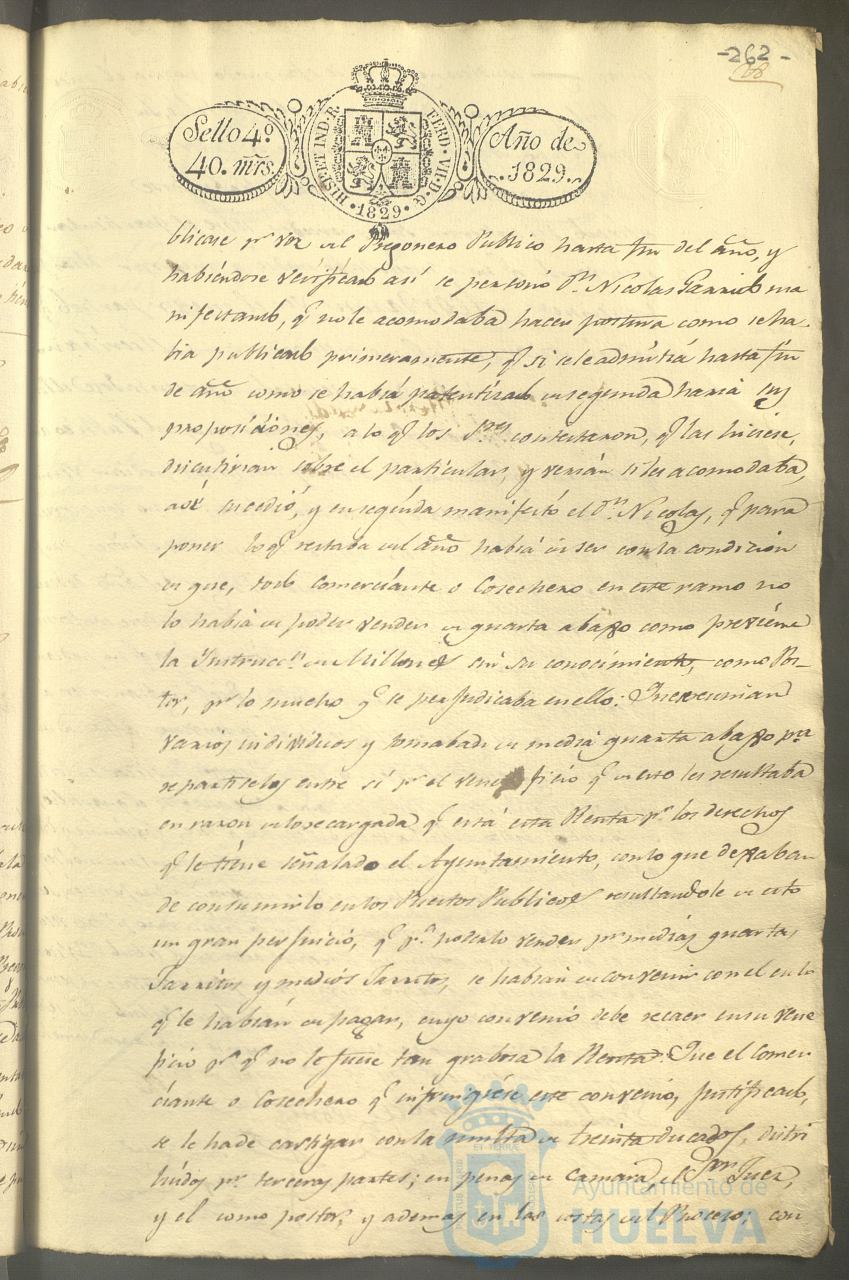 -262-
Sello 4º
40. mrs.
HISP. ET IND. R.
FERD. VII. D. G.
1829
Año de
1829.
blicase pr voz del Pregonero Publico hasta fin del año, y
habiéndose verificado asi se personó Dn Nicolas Garrido ma
nifestando, q no le acomodaba hacer postura como se ha-
bia publicado primeramente, q si se le admitia hasta fin
de año como se habiá patentizado en segunda haria sus
proposiciónes, a lo q los Sres contestaron, q las hiciese,
discutirian sobre el particular, y verian si les acomodaba,
asi sucedió, y en seguida manifestó el Dn Nicolas, q para
poner lo q restaba del año habiá de ser con la condición
de que, todo comerciante o Cosechero en este ramo no
lo habia de poder vender de quarta abaxo como previéne
la Instruccn de Millones sin su conocimiento, como Pos-
tor, pr lo mucho q se perjudicaba en ello: Que se reunian
varios individuos y tomaban de mediá quarta abaxo pra
repartirselos entre si pr el veneficio q en esto les resultaba
en razon de lo recargada q está esta Renta pr los derechos
q le tiéne señalado el Ayuntamiento, con lo que dexaban
de consumirlo en los Puestos Publicos resultandole en esto
un gran perjuicio, q pa poderlo vender pr mediás quartas,
Jarritos y medios Jarritos, se habian de convenir con el en lo
q le habián de pagar, cuyo convenio debe recaer en su vene
ficio pr q no le fuese tan grabosa la Renta: Que el Comer-
ciante o Cosechero q infringiése este convenio, justificado,
se le ha de castigar con la multa de treinta ducados, distri
buidos pr terceras partes; en penas de Camara, el Sor Juez,
y el como postor, y ademas en las costas del Proceso; con
Ayuntamiento de
HUELVA